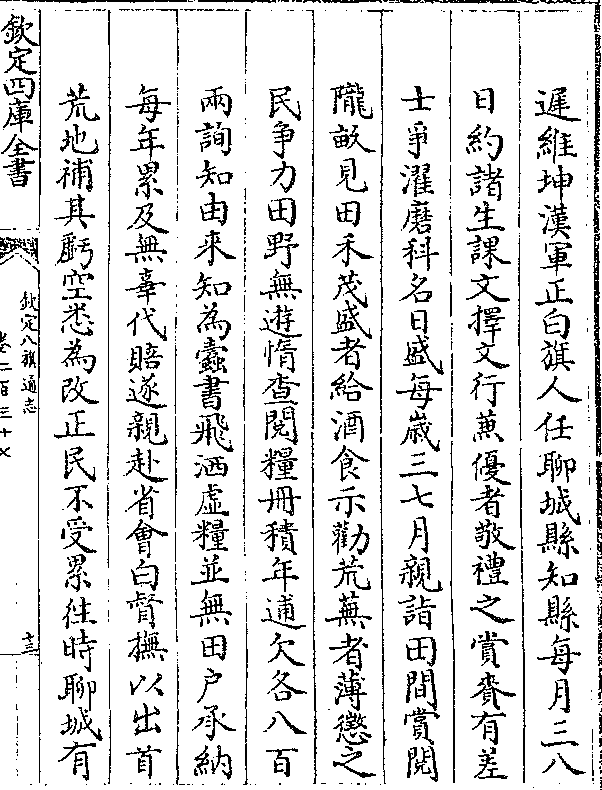 遲維坤漢軍正白旗人任聊城縣知縣每月三八
日約諸生課文擇文行兼優者敬禮之賞賚有差
士爭濯磨科名日盛每嵗三七月親詣田間賞閱
隴畝見田禾茂盛者給酒食示勸荒蕪者薄懲之
民争力田野無遊惰查閱糧冊積年逋欠各八百
兩詢知由来知為蠹書飛洒虛糧並無田户承納
每年累及無辜代賠遂親赴省會白督撫以出首
荒地補其虧空悉為改正民不受累往時聊城有
欽定四庫全書
欽定八旗通志
卷二百三十
十三